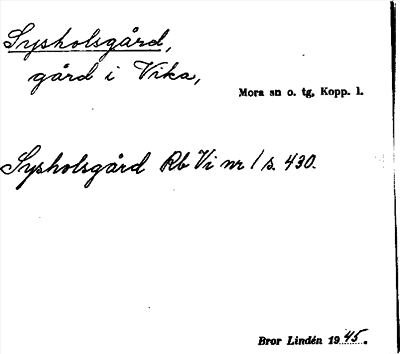 Sysholsgård,
gård i Vika,
Mora sn o. tg, Kopp. l.
Sysholsgård Rb Vi nr 1 s. 430.
Bror Lindén 1945.